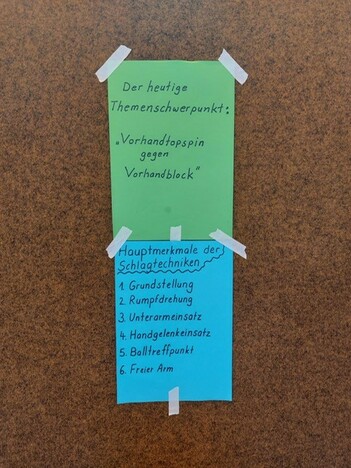 Der heutige
Themenschwerpunkt:
„Vorhandtopspin
gegen
Vorhandblock"
Hauptmerkmale der
Schlagtechniken
1. Grundstellung
2. Rumpfdrehung
3. Unterarmeinsatz
4. Handgelenkeinsatz
5. Balltreffpunkt
6. Freier Arm